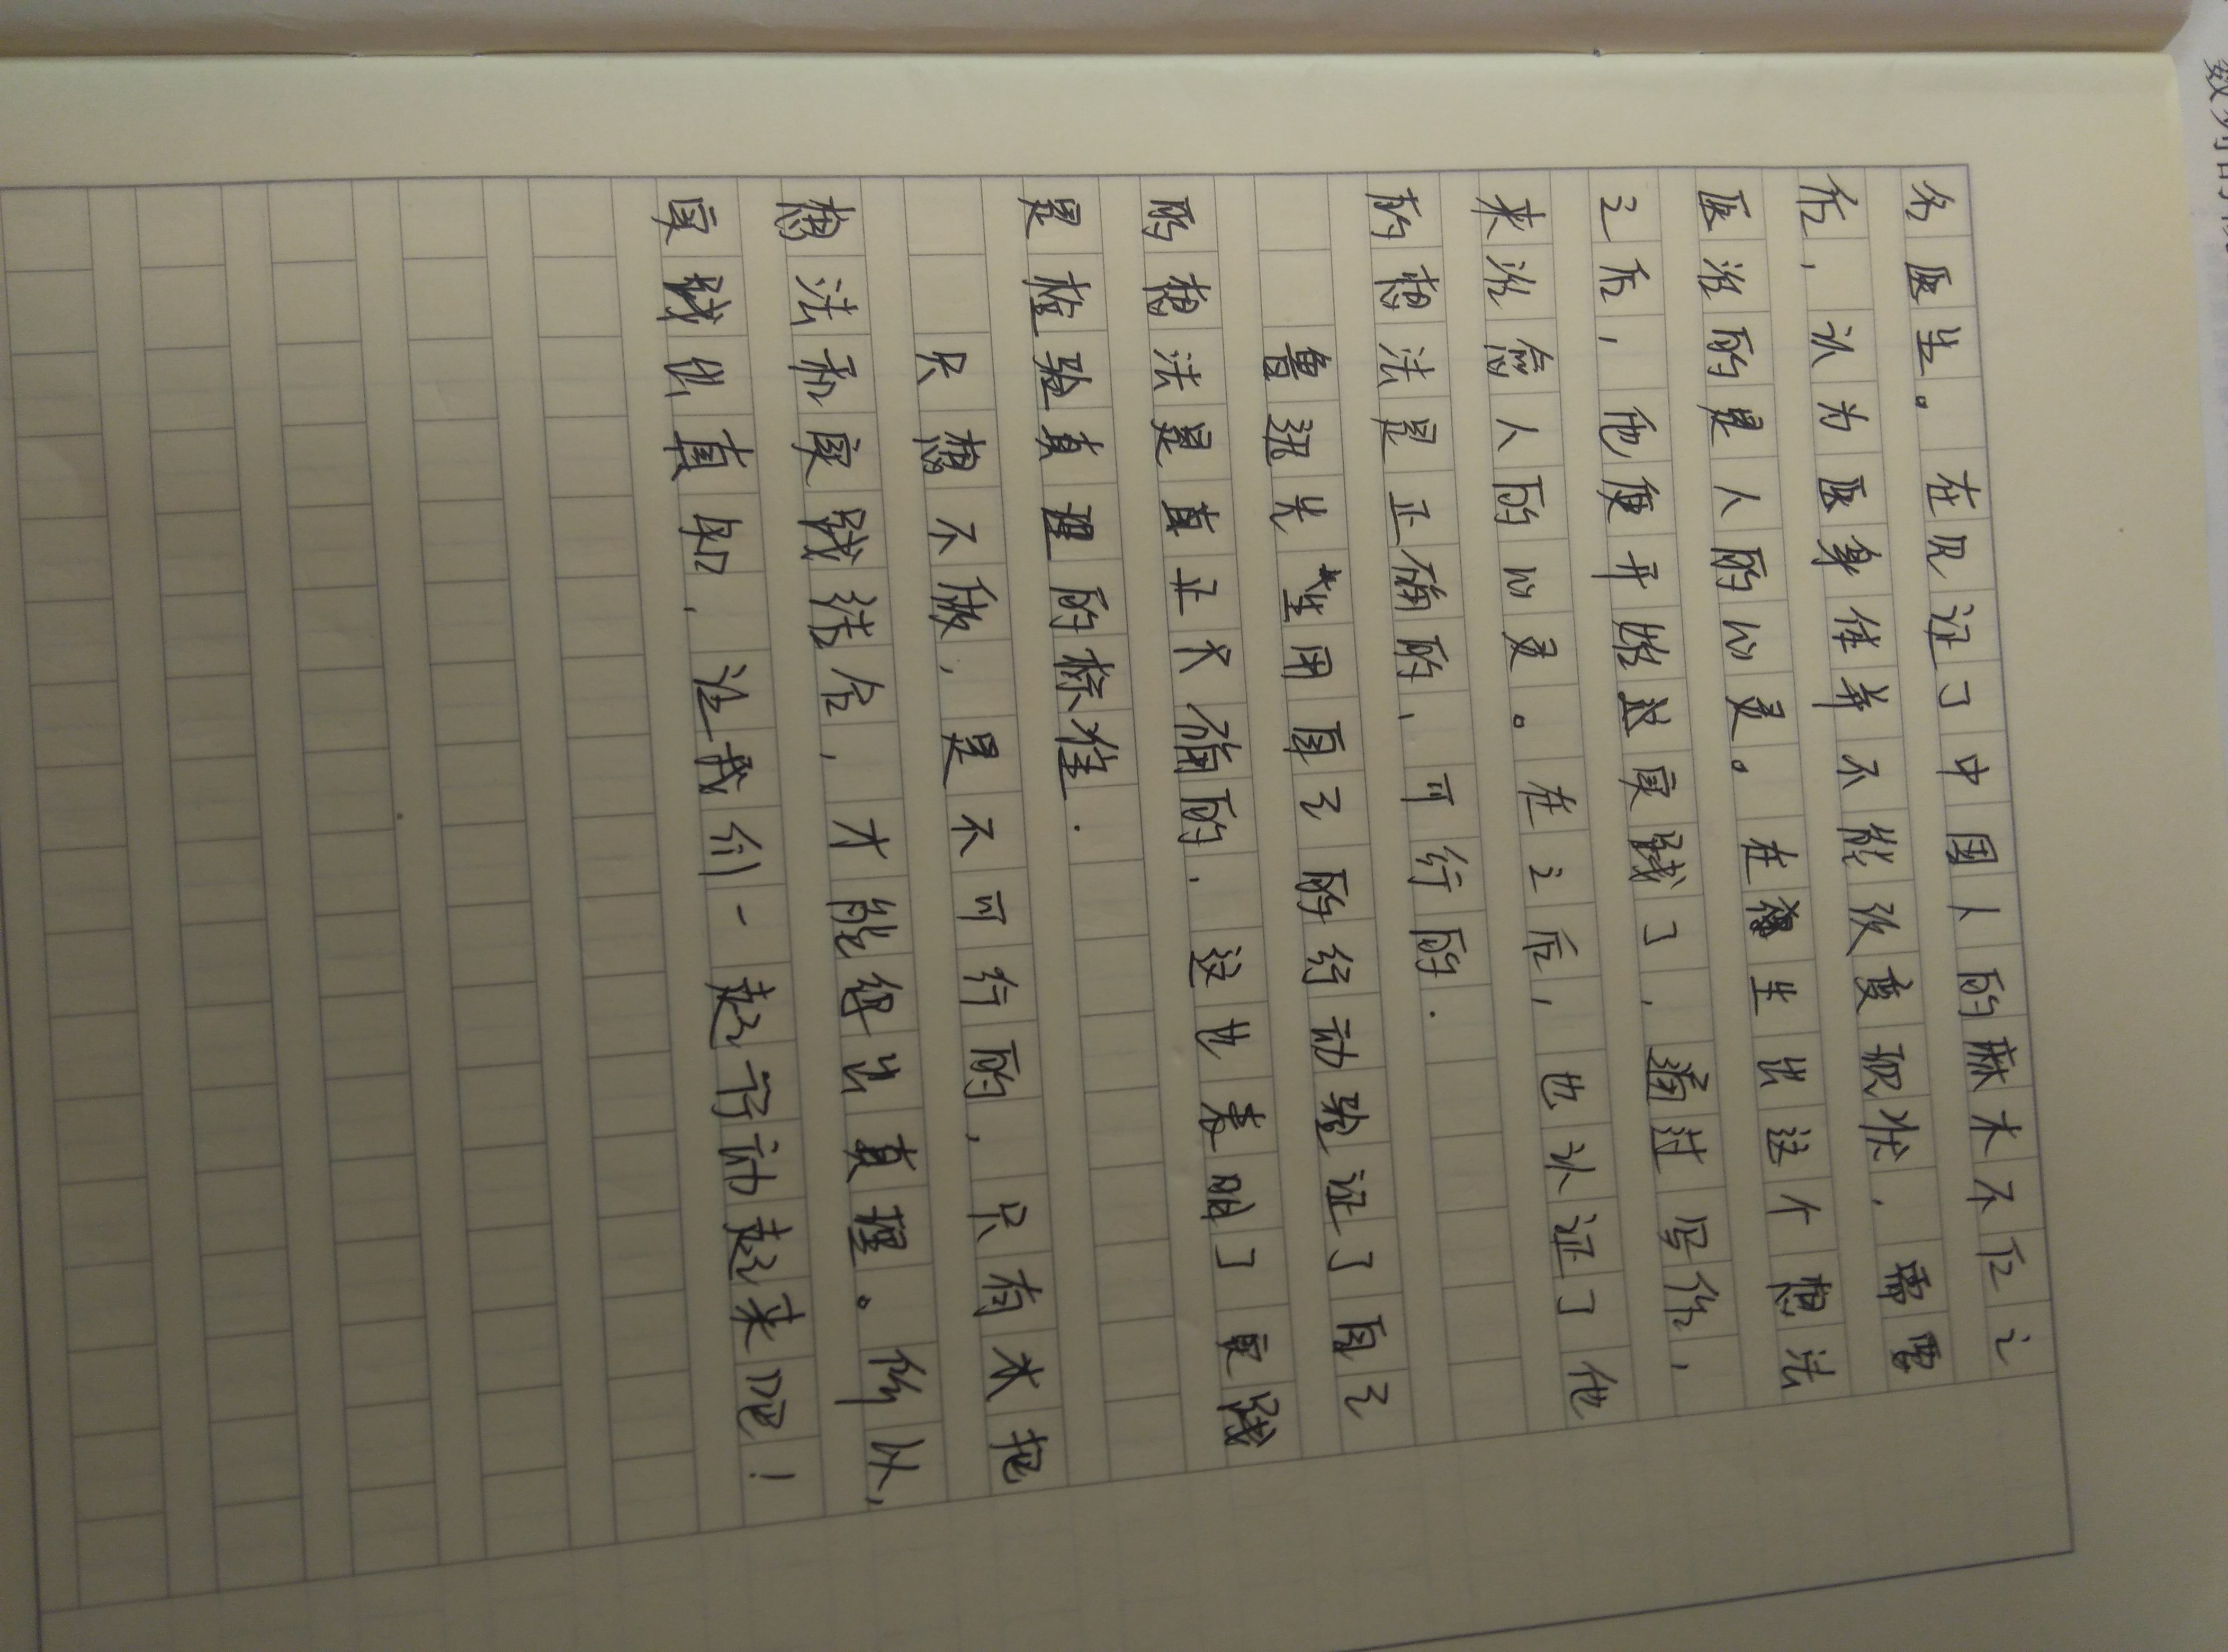 名医生。在见证了中国人的麻木不仁之
后，认为医身体并不能改变现状，需要
医治的是人的心灵。在产生出这个想法
之后，他便开始实践了，通过写作，
来治愈人的心灵。在之后，也认证了他
的想法是正确的、可行的.
鲁迅先生用自己的行动验证了自己
的想法是真正正确的. 这也表明了实践
是检验真理的标准.
只想不做，是不可行的，只有大把
想法和实践结合，才能得出真理。所以，
实践出真知，让我们一起行动起来吧！